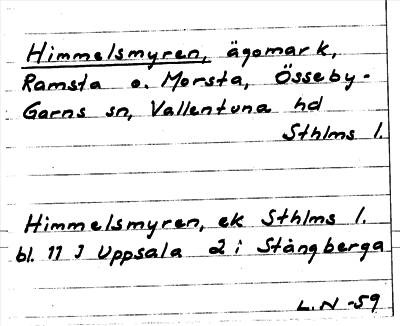 Himmelsmyren, ägomark,
Ramsta o. Morsta, Össeby-
Garns sn, Vallentuna hd
Sthlms l.
Himmelsmyren, ek Sthlms l.
bl. 11 J Uppsala 2 i Stångberga
L.N -59